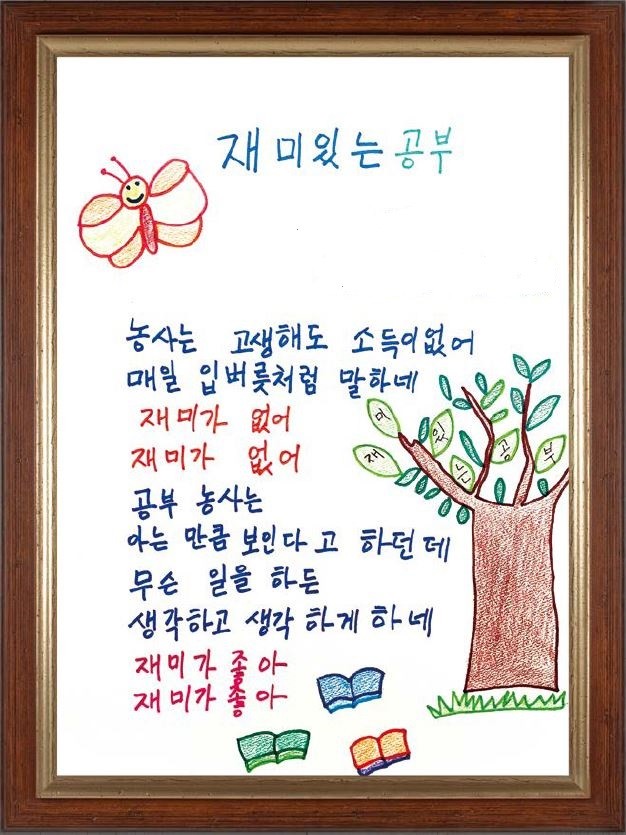 재미있는 공부
농사는 고생해도 소득이없어
매일 입버릇처럼 말하네
재미가 없어
재미가 없어
공부 농사는
아는 만큼 보인다고 하던데
무슨 일을 하든
생각하고 생각하게하네
재미가 좋아
재미가 좋아
재미있는공부